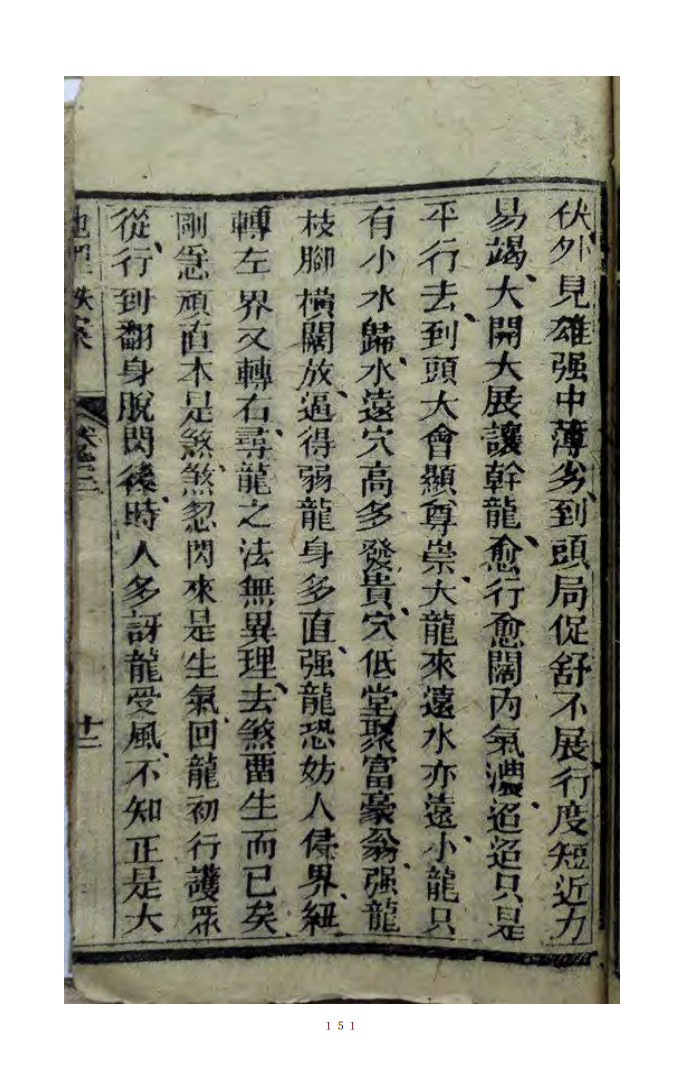 伏、外見雄强中薄劣、到頭局促舒不展行度短近力
易竭、大開大展讓幹龍、愈行愈闊內氣濃、迢迢只是
平行去、到頭大會顯尊崇、大龍來遠水亦遠、小龍只
有小水歸、水遠穴高多發貴、穴低堂聚富豪翁、强龍
枝腳橫闊放、逼得弱龍身多直、强龍恐妨人侵界、紐
轉左界又轉右、尋龍之法無異理、去煞畱生而已矣
剛急頑直本是煞、煞忽閃來是生氣、回龍初行護眾
從、行到翻身脫閃後、時人多訝龍受風、不知正是大
地理
卷二
十二
151